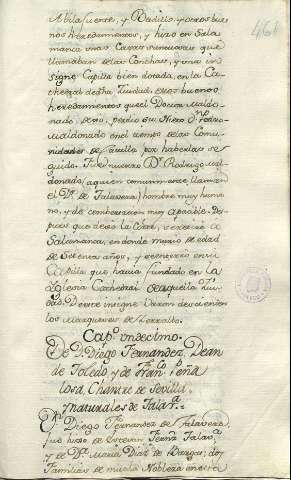 461
Abilafuente, y Badillo, y otros bue
nos heredamientos, y hizo en Sala
manca unas Casas suntuosas que
llamaban de las Conchas, y una in
signe Capilla bien dotada, en la Ca
thedral de dha Ciudad, estos buenos
heredamientos que el Doctor Maldo
nado dexó, perdio su Nieto Dn Pedro
Maldonado en el tiempo de las Comu
nidades de Castilla por haberlas se
guido. Fue nuestro Dr. Rodrigo Mal
donado, (a quien comunmente llaman
el Dr. de Talavera) hombre muy huma
no, y de combersacion muy apacible. Des
pues que dexó la Corte, se retiró a
Salamanca, en donde murio de edad
de setenta años, y se enterró en su
Capilla que havia fundado en la
Iglesia Cathedral de aquella Ciu
dad. De este insigne Varon descienden
los Marqueses de
Capo. undecimo.
De D. Diego Fernandez, Dean
de Toledo, y de Franco. Peña
losa, Chantre de Sevilla,
y naturales de Talaa.
Dn. Diego Fernandez de Talavera,
fue hijo de Estevan Fernz Talaa.
y de Da. Maria Diaz de Bargas; dos
Familias de mucha Nobleza en esta